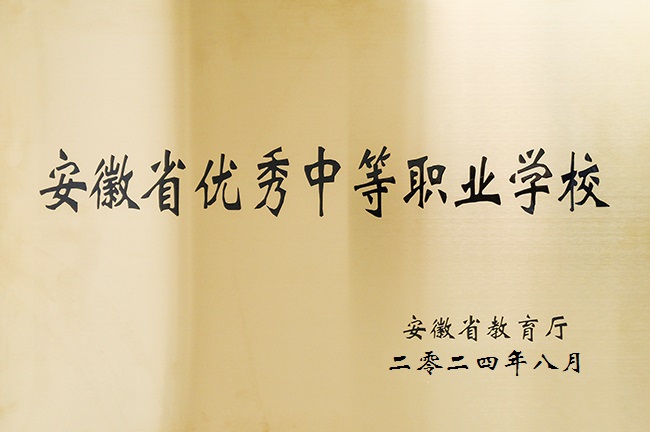 安徽省优秀中等职业学校
安徽省教育厅
二零二四年八月